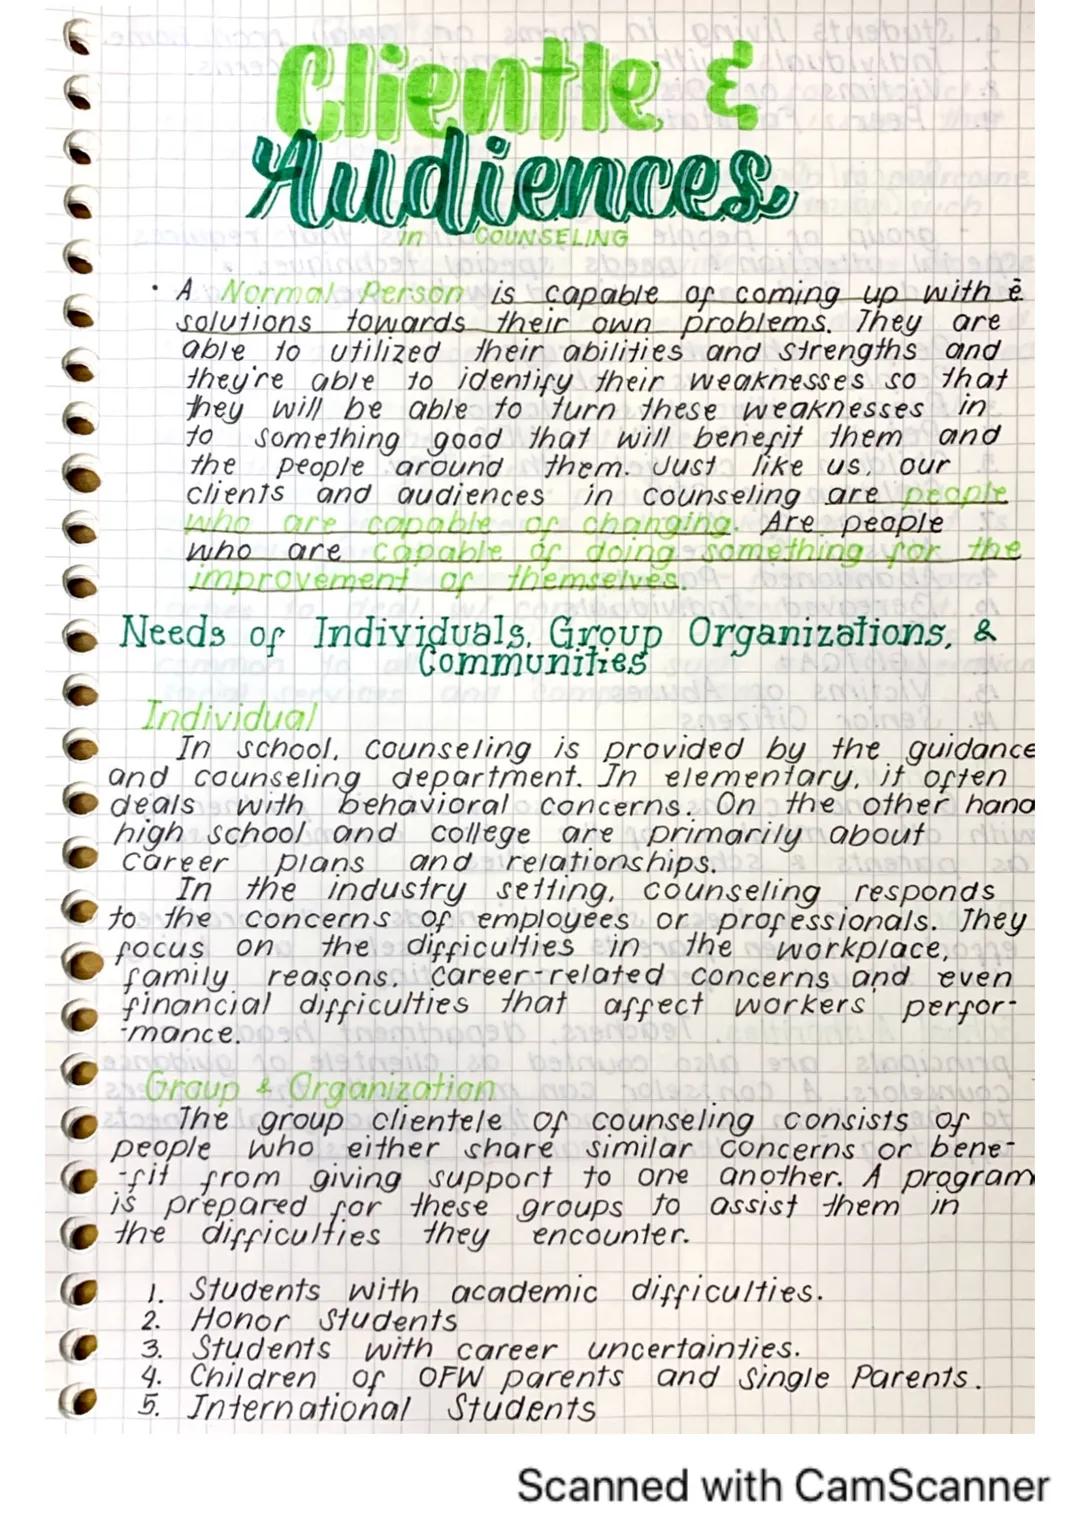 Clientle &
Audiences
in COUNSELING
• A Normal Person is capable of coming up with ē
solutions towards their own problems. They are
able to utilized their abilities and strengths and
they're able to identify their weaknesses so that
they will be able to turn these weaknesses in
to something good that will benefit them and
the people around them. Just like us, our
clients and audiences in counseling are people
who are capable of changing. Are people
who are capable of doing something for the
improvement of themselves.
Needs of Individuals, Group Organizations, &
Communities
Individual
In school, counseling is provided by the guidance
and counseling department. In elementary, it often
deals with behavioral concerns. On the other hand
high school and college are primarily about
career plans and relationships.
In the industry setting, counseling responds
to the concerns of employees or professionals. They
focus on the difficulties in the workplace,
family reasons, career-related concerns and even
financial difficulties that affect workers perfor-
-mance.
Group & Organization
The group clientele of counseling consists of
people who either share similar concerns or bene-
-fit from giving support to one another. A program
is prepared for these groups to assist them in
the difficulties they encounter.
1. Students with academic difficulties.
2. Honor Students
3. Students with career uncertainties.
4. Children of OFW parents and Single Parents.
5. International Students
Scanned with CamScanner